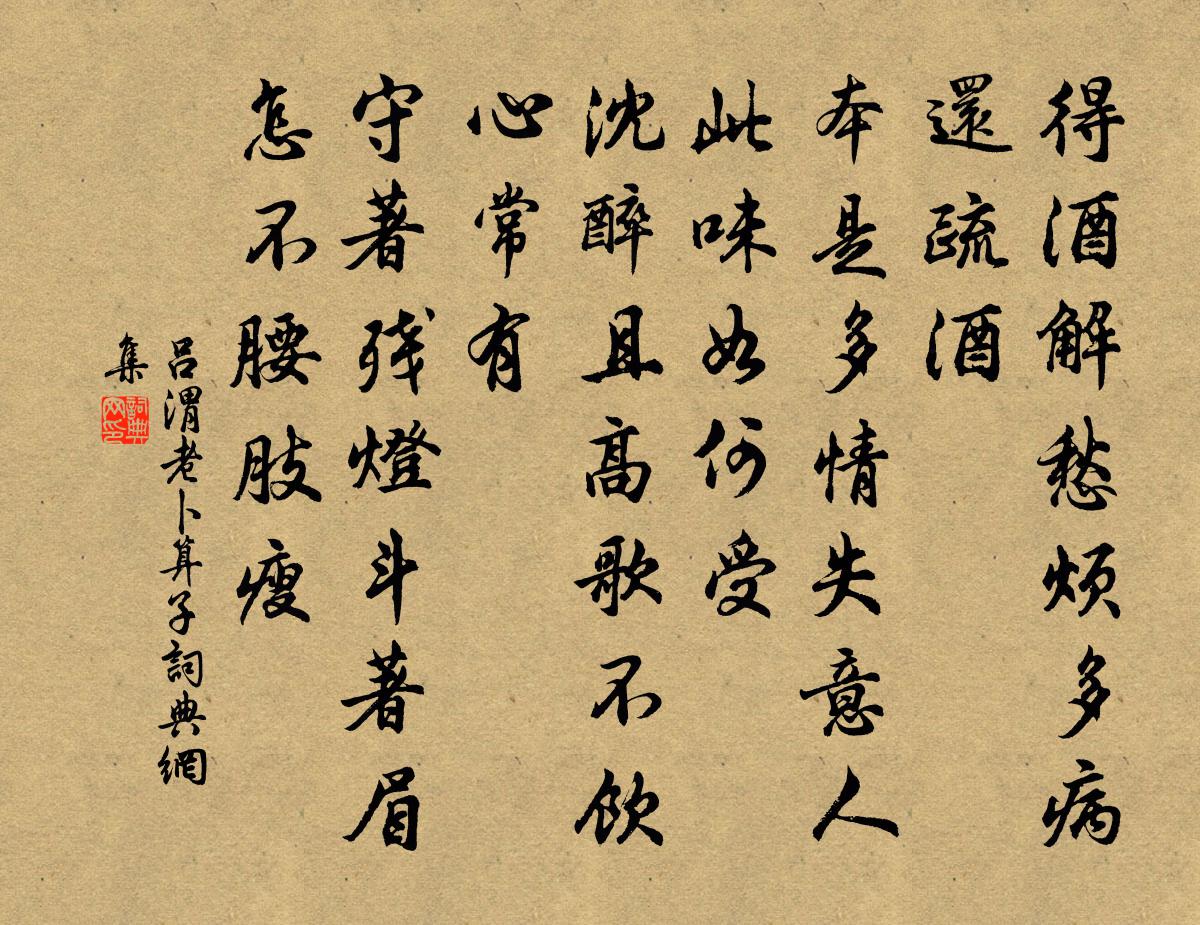 得酒解愁烦多病
還疏酒
本是多情失意人
此味如何受
沈醉且高歌不飲
心常有
守著残燈斗著眉
怎不腰肢瘦
呂渭老卜算子詞典網
集
詞典
网印